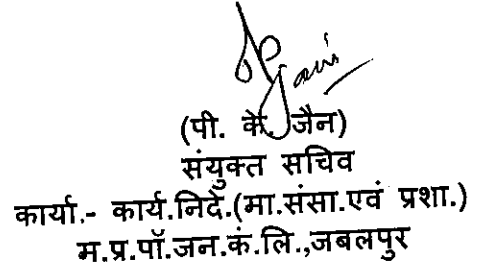 (पी. के. जैन)
संयुक्त सचिव
कार्या.- कार्य.निदे.(मा.संसा.एवं प्रशा.)
म.प्र.पॉ.जन.कं.लि.,जबलपुर